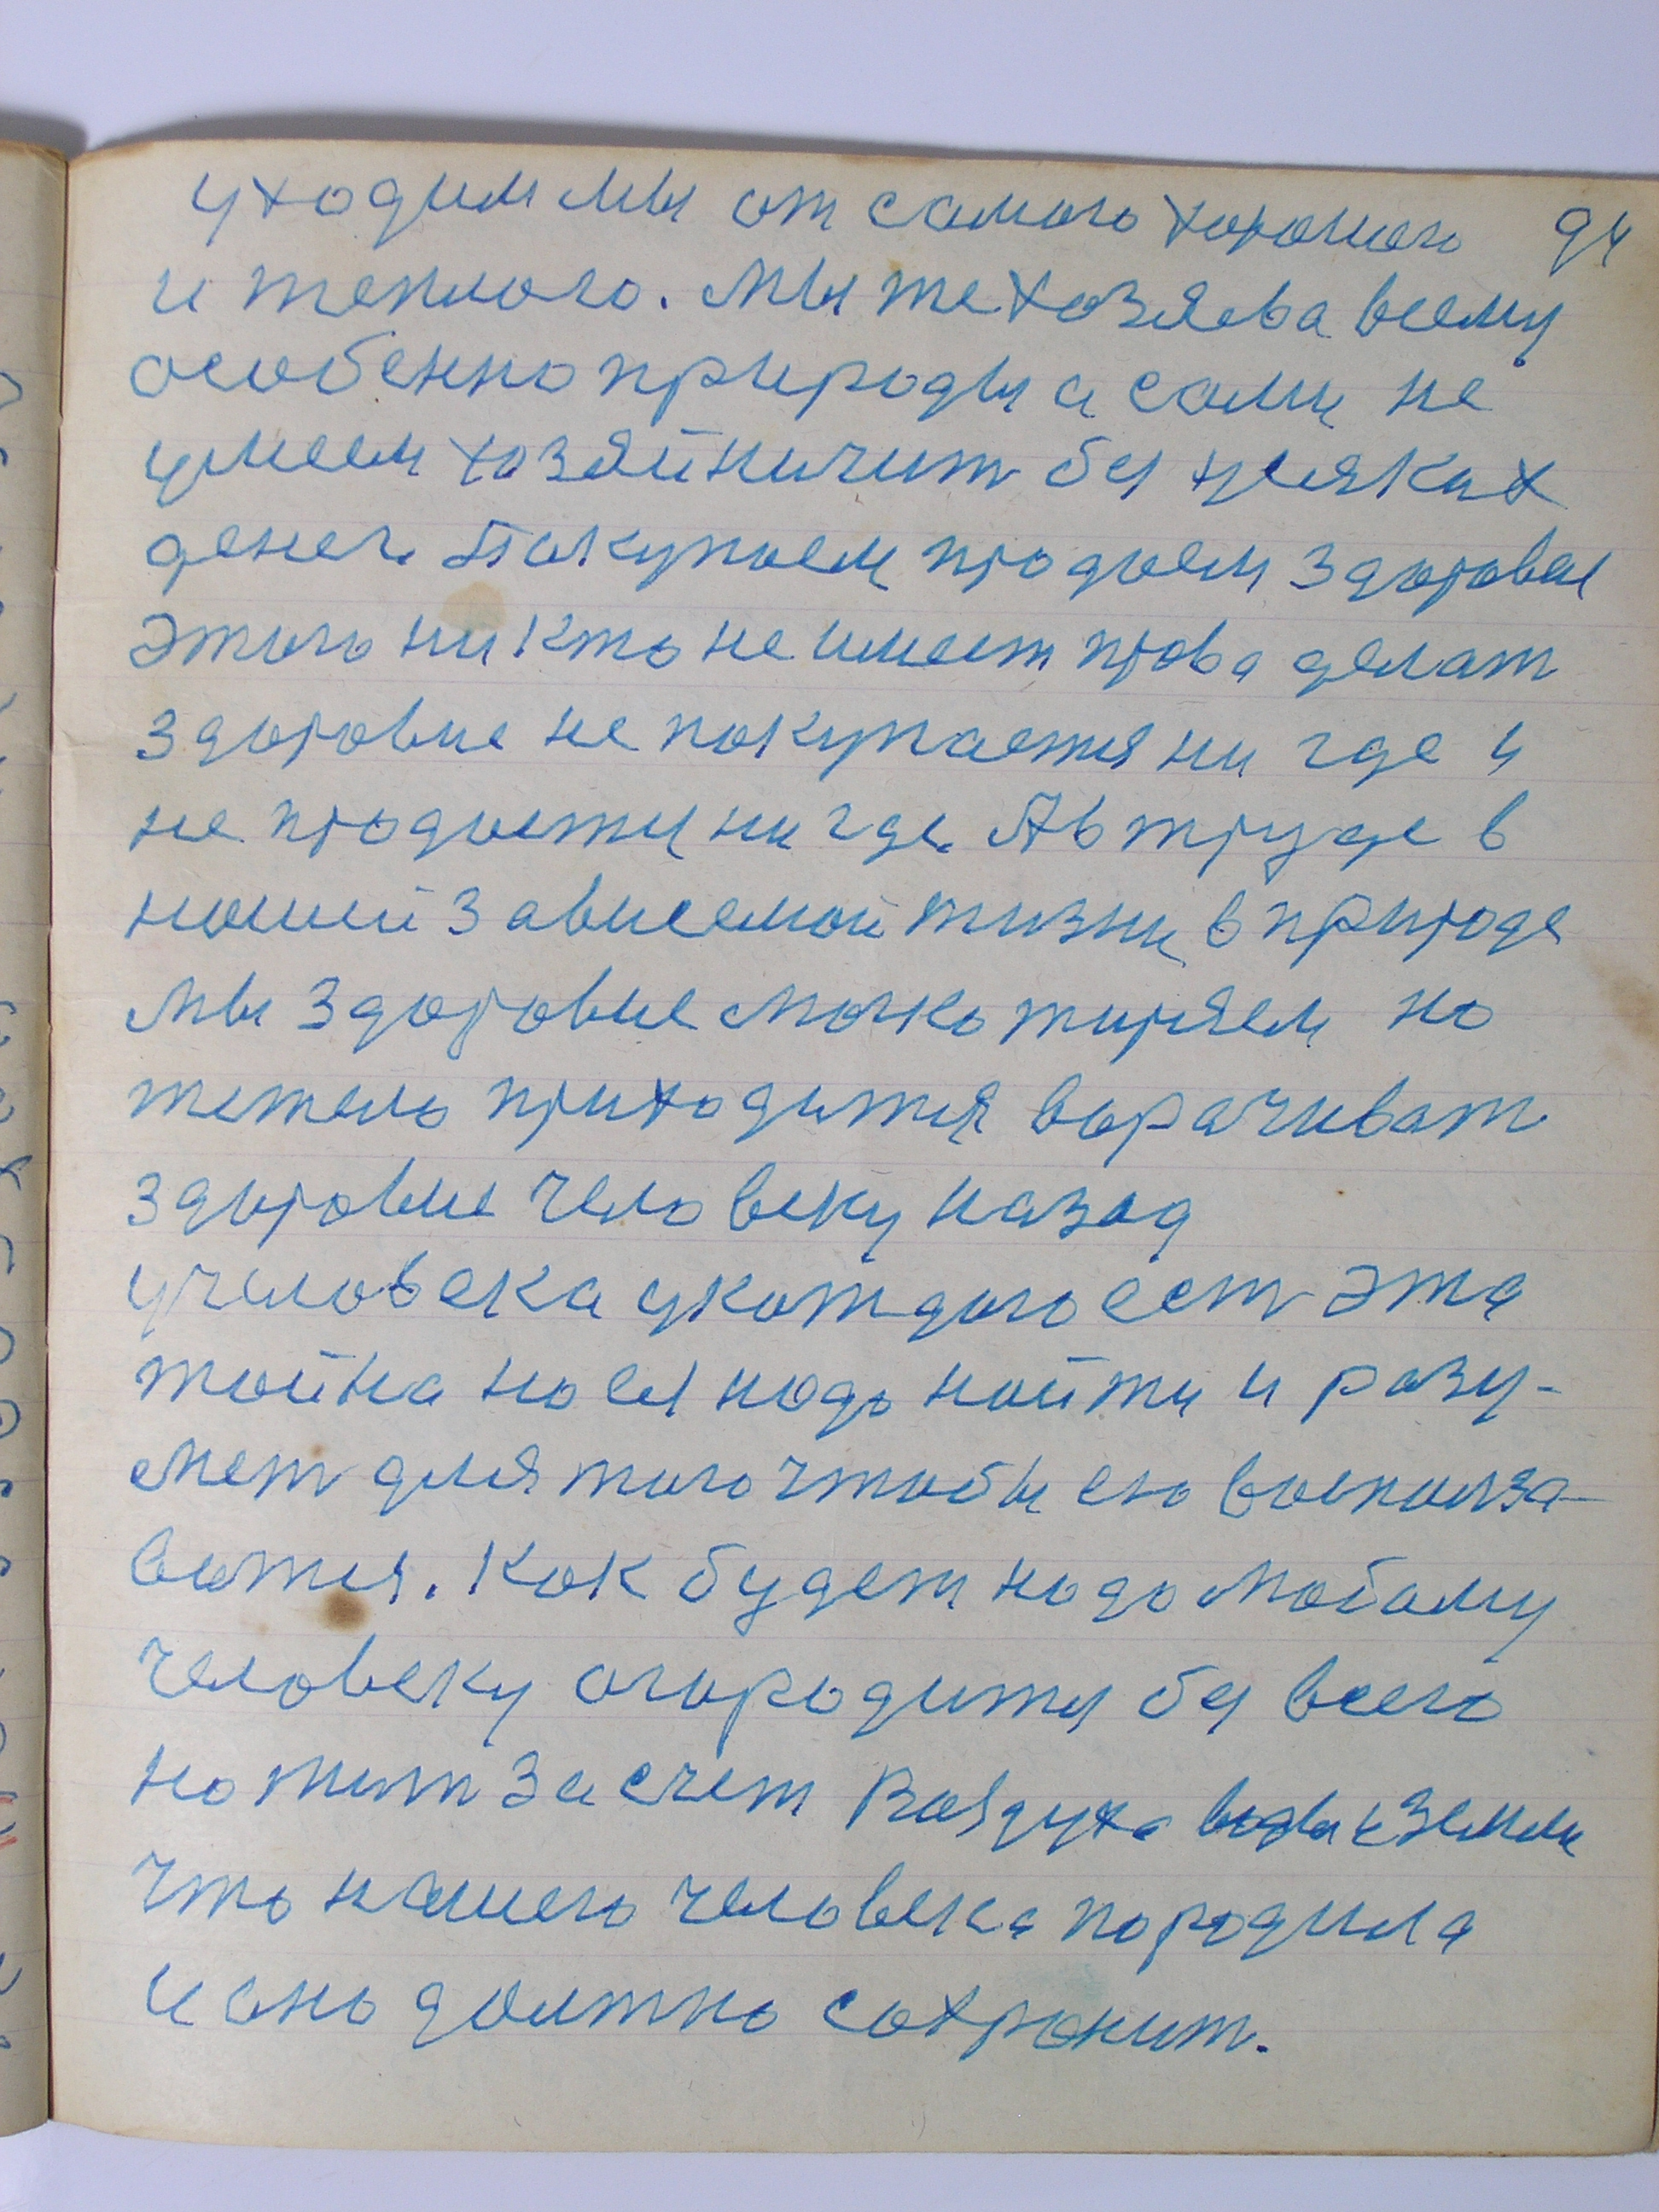 уходим мы от самого хорошого 94
и теплого. Мы же хозяева всему
особенно природы а сами не
умеем хозяйничит без усяких
денег. Покупаем продаем здоровие
этого ни кто не имеет права делат
здоровие не покупается ни где и
не продается ни где. А в труде в
нашей зависемой жизни в природе
мы здоровие мохко тиряем но
тежело приходится ворачиват
здоровие человеку назад
у человека у каждого ест эта
тайна но ея надо найти и разу-
мет для того чтобы ею восполза-
ватся. Как будет надо любому
человеку огородится без всего
но жит за счет Воздуха воды и земли
что нашего человека породила
и оно должно сохранит.